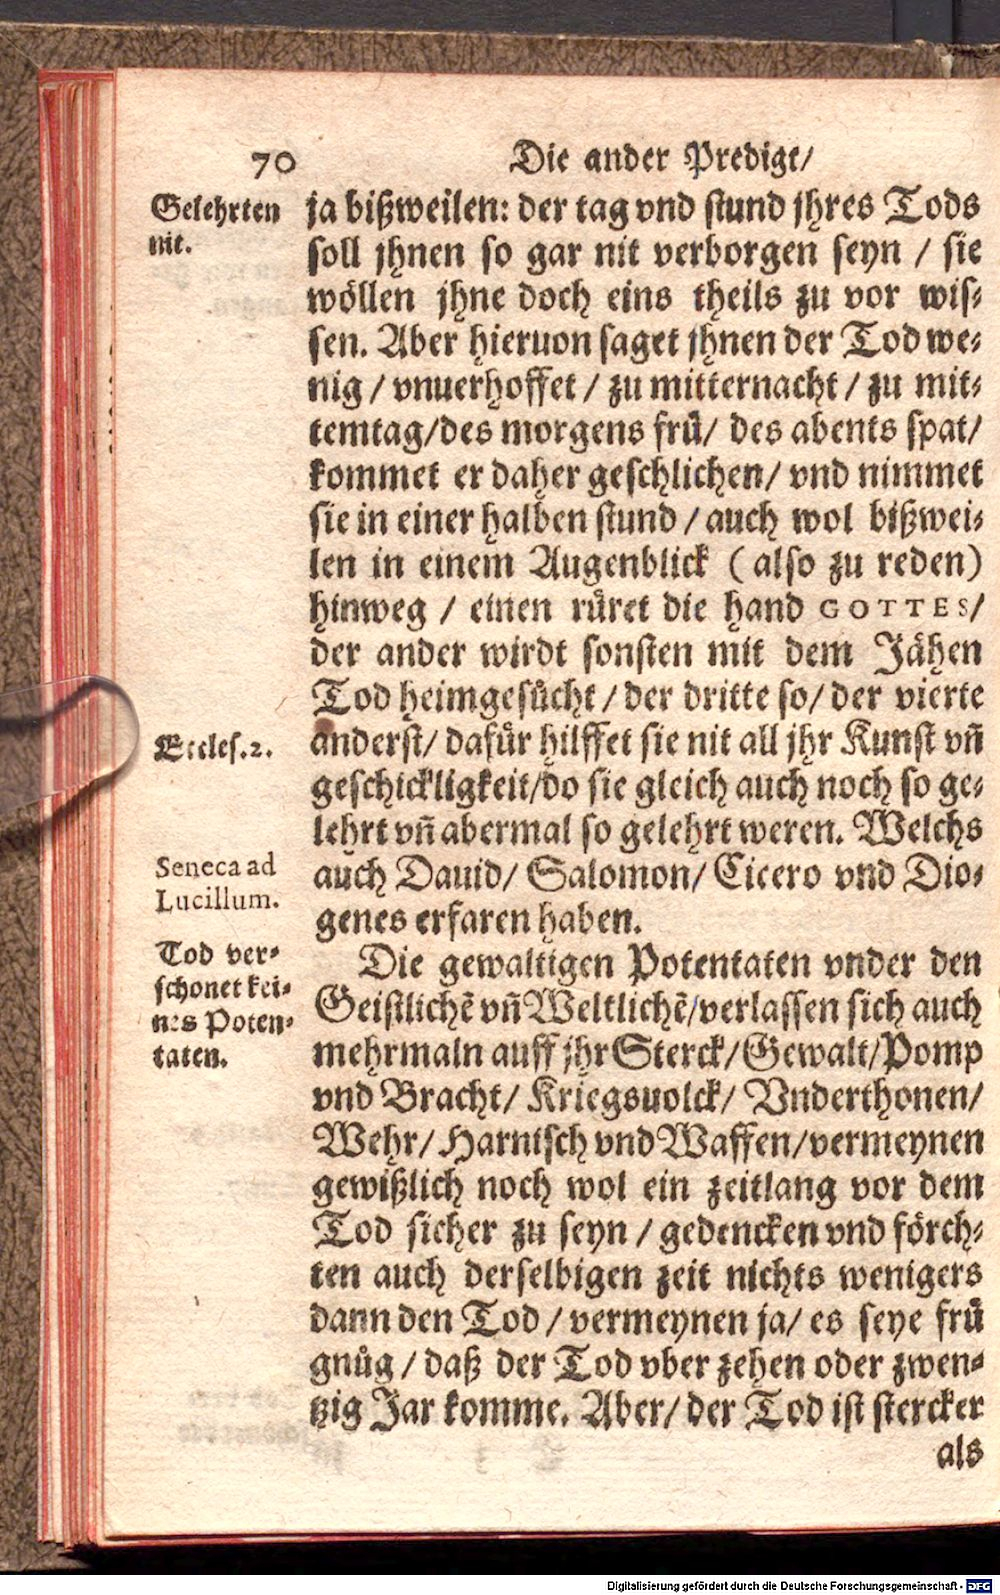 70
Die ander Predigt/
Gelehrten
nit.
ja bißweilen: der tag vnd stund jhres Tods
soll jhnen so gar nit verborgen seyn / sie
wöllen jhne doch eins theils zu vor wis⸗
sen. Aber hieruon saget jhnen der Tod we⸗
nig / vnuerhoffet / zu mitternacht / zu mit⸗
temtag/des morgens frü/ des abents spat/
kommet er daher geschlichen/ vnd nimmet
sie in einer halben stund / auch wol bißwei⸗
len in einem Augenblick (also zu reden)
hinweg / einen rüret die hand GOTTES/
der ander wirdt sonsten mit dem Jähen
Tod heimgesůcht / der dritte so/ der vierte
Eccles.2.
anderst/ dafür hilffet sie nit all jhr Kunst vñ
geschickligkeit/do sie gleich auch noch so ge⸗
lehrt vñ abermal so gelehrt weren. Welchs
Seneca ad
Lucillum.
auch Dauid/ Salomon/ Cicero vnd Dio⸗
genes erfaren haben.
Tod ver⸗
schonet kei⸗
nes Poten⸗
taten.
Die gewaltigen Potentaten vnder den
Geistlichẽ vñ Weltlichẽ/verlassen sich auch
mehrmaln auff jhr Sterck/Gewalt/Pomp
vnd Bracht/ Kriegsuolck/ Vnderthonen/
Wehr/ Harnisch vnd Waffen/vermeynen
gewißlich noch wol ein zeitlang vor dem
Tod sicher zu seyn / gedencken vnd förch⸗
ten auch derselbigen zeit nichts wenigers
dann den Tod / vermeynen ja/ es seye frü
gnůg / daß der Tod vber zehen oder zwen⸗
tzig Jar komme. Aber/ der Tod ist stercker
als
Digitalisierung gefördert durch die Deutsche Forschungsgemeinschaft - DFG